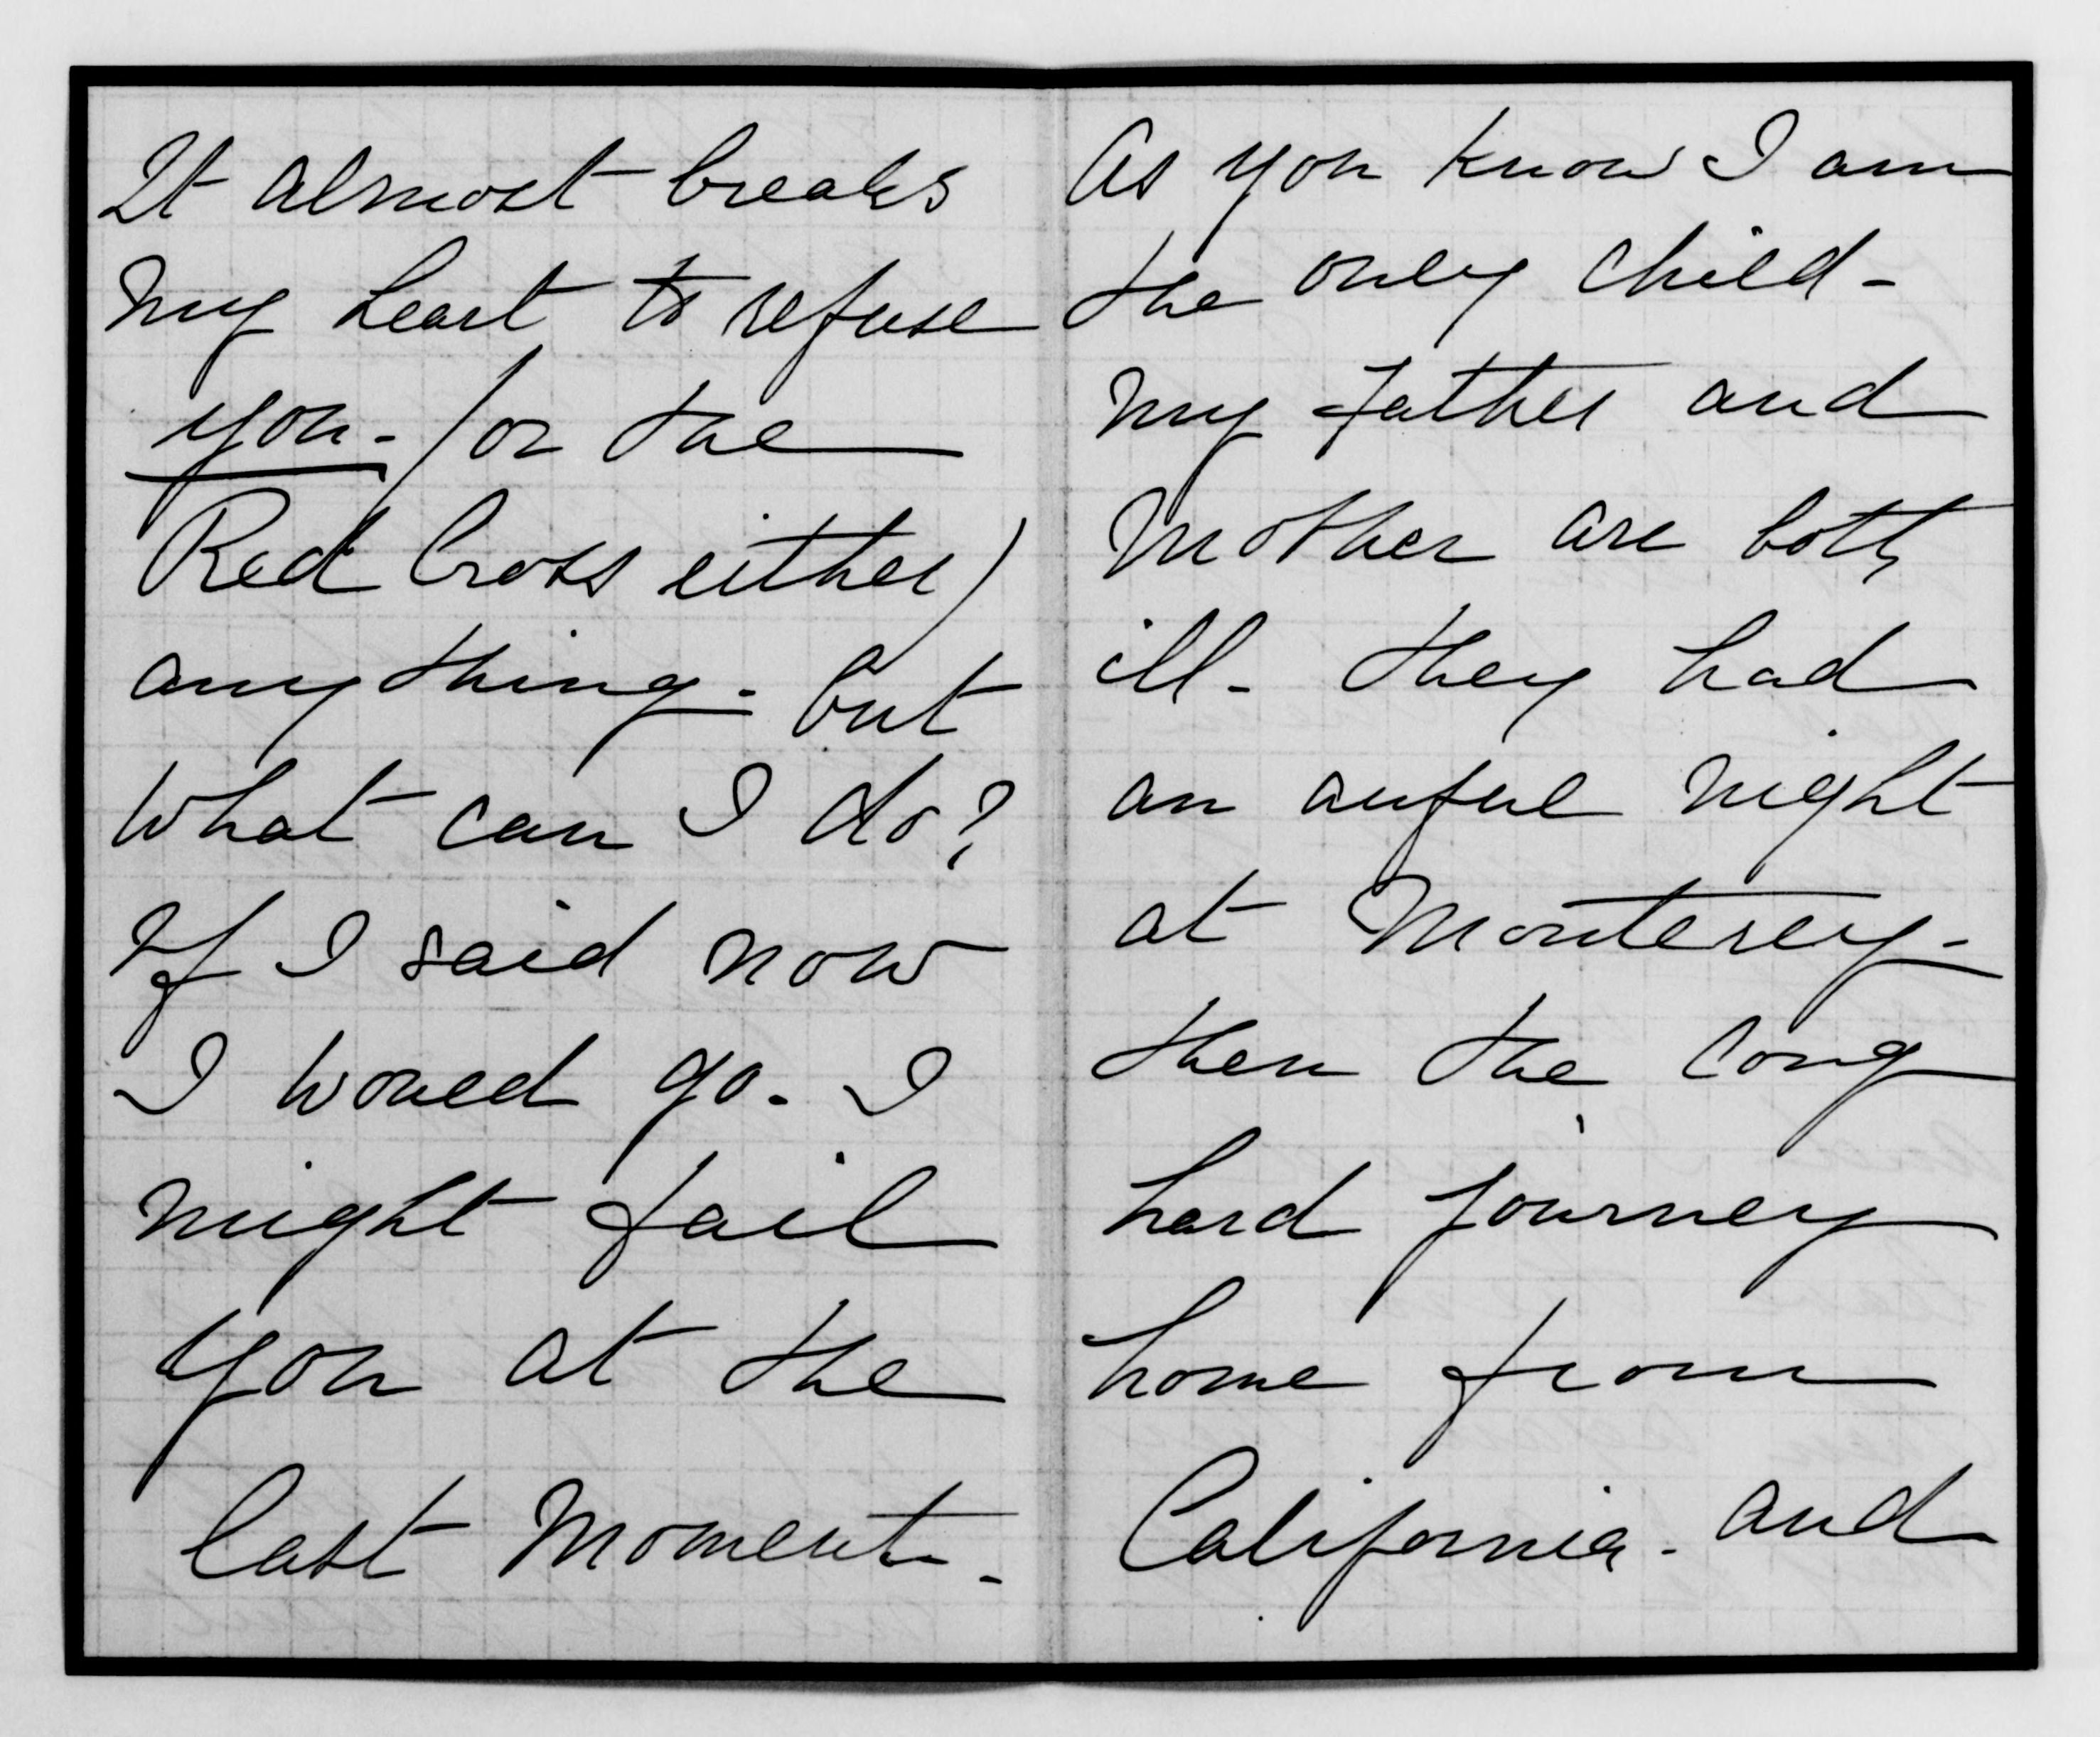 It almost breaks
my heart to refuse
you - (or the
Red Cross either)
anything - but
what can I do?
If I said now
I would go - I
might fail
you at the
last moment -
As you know I am
the only child -
my father and
mother are both
ill - they had
an awful night
at Monterey -
then the long
hard journey
home from
California - and